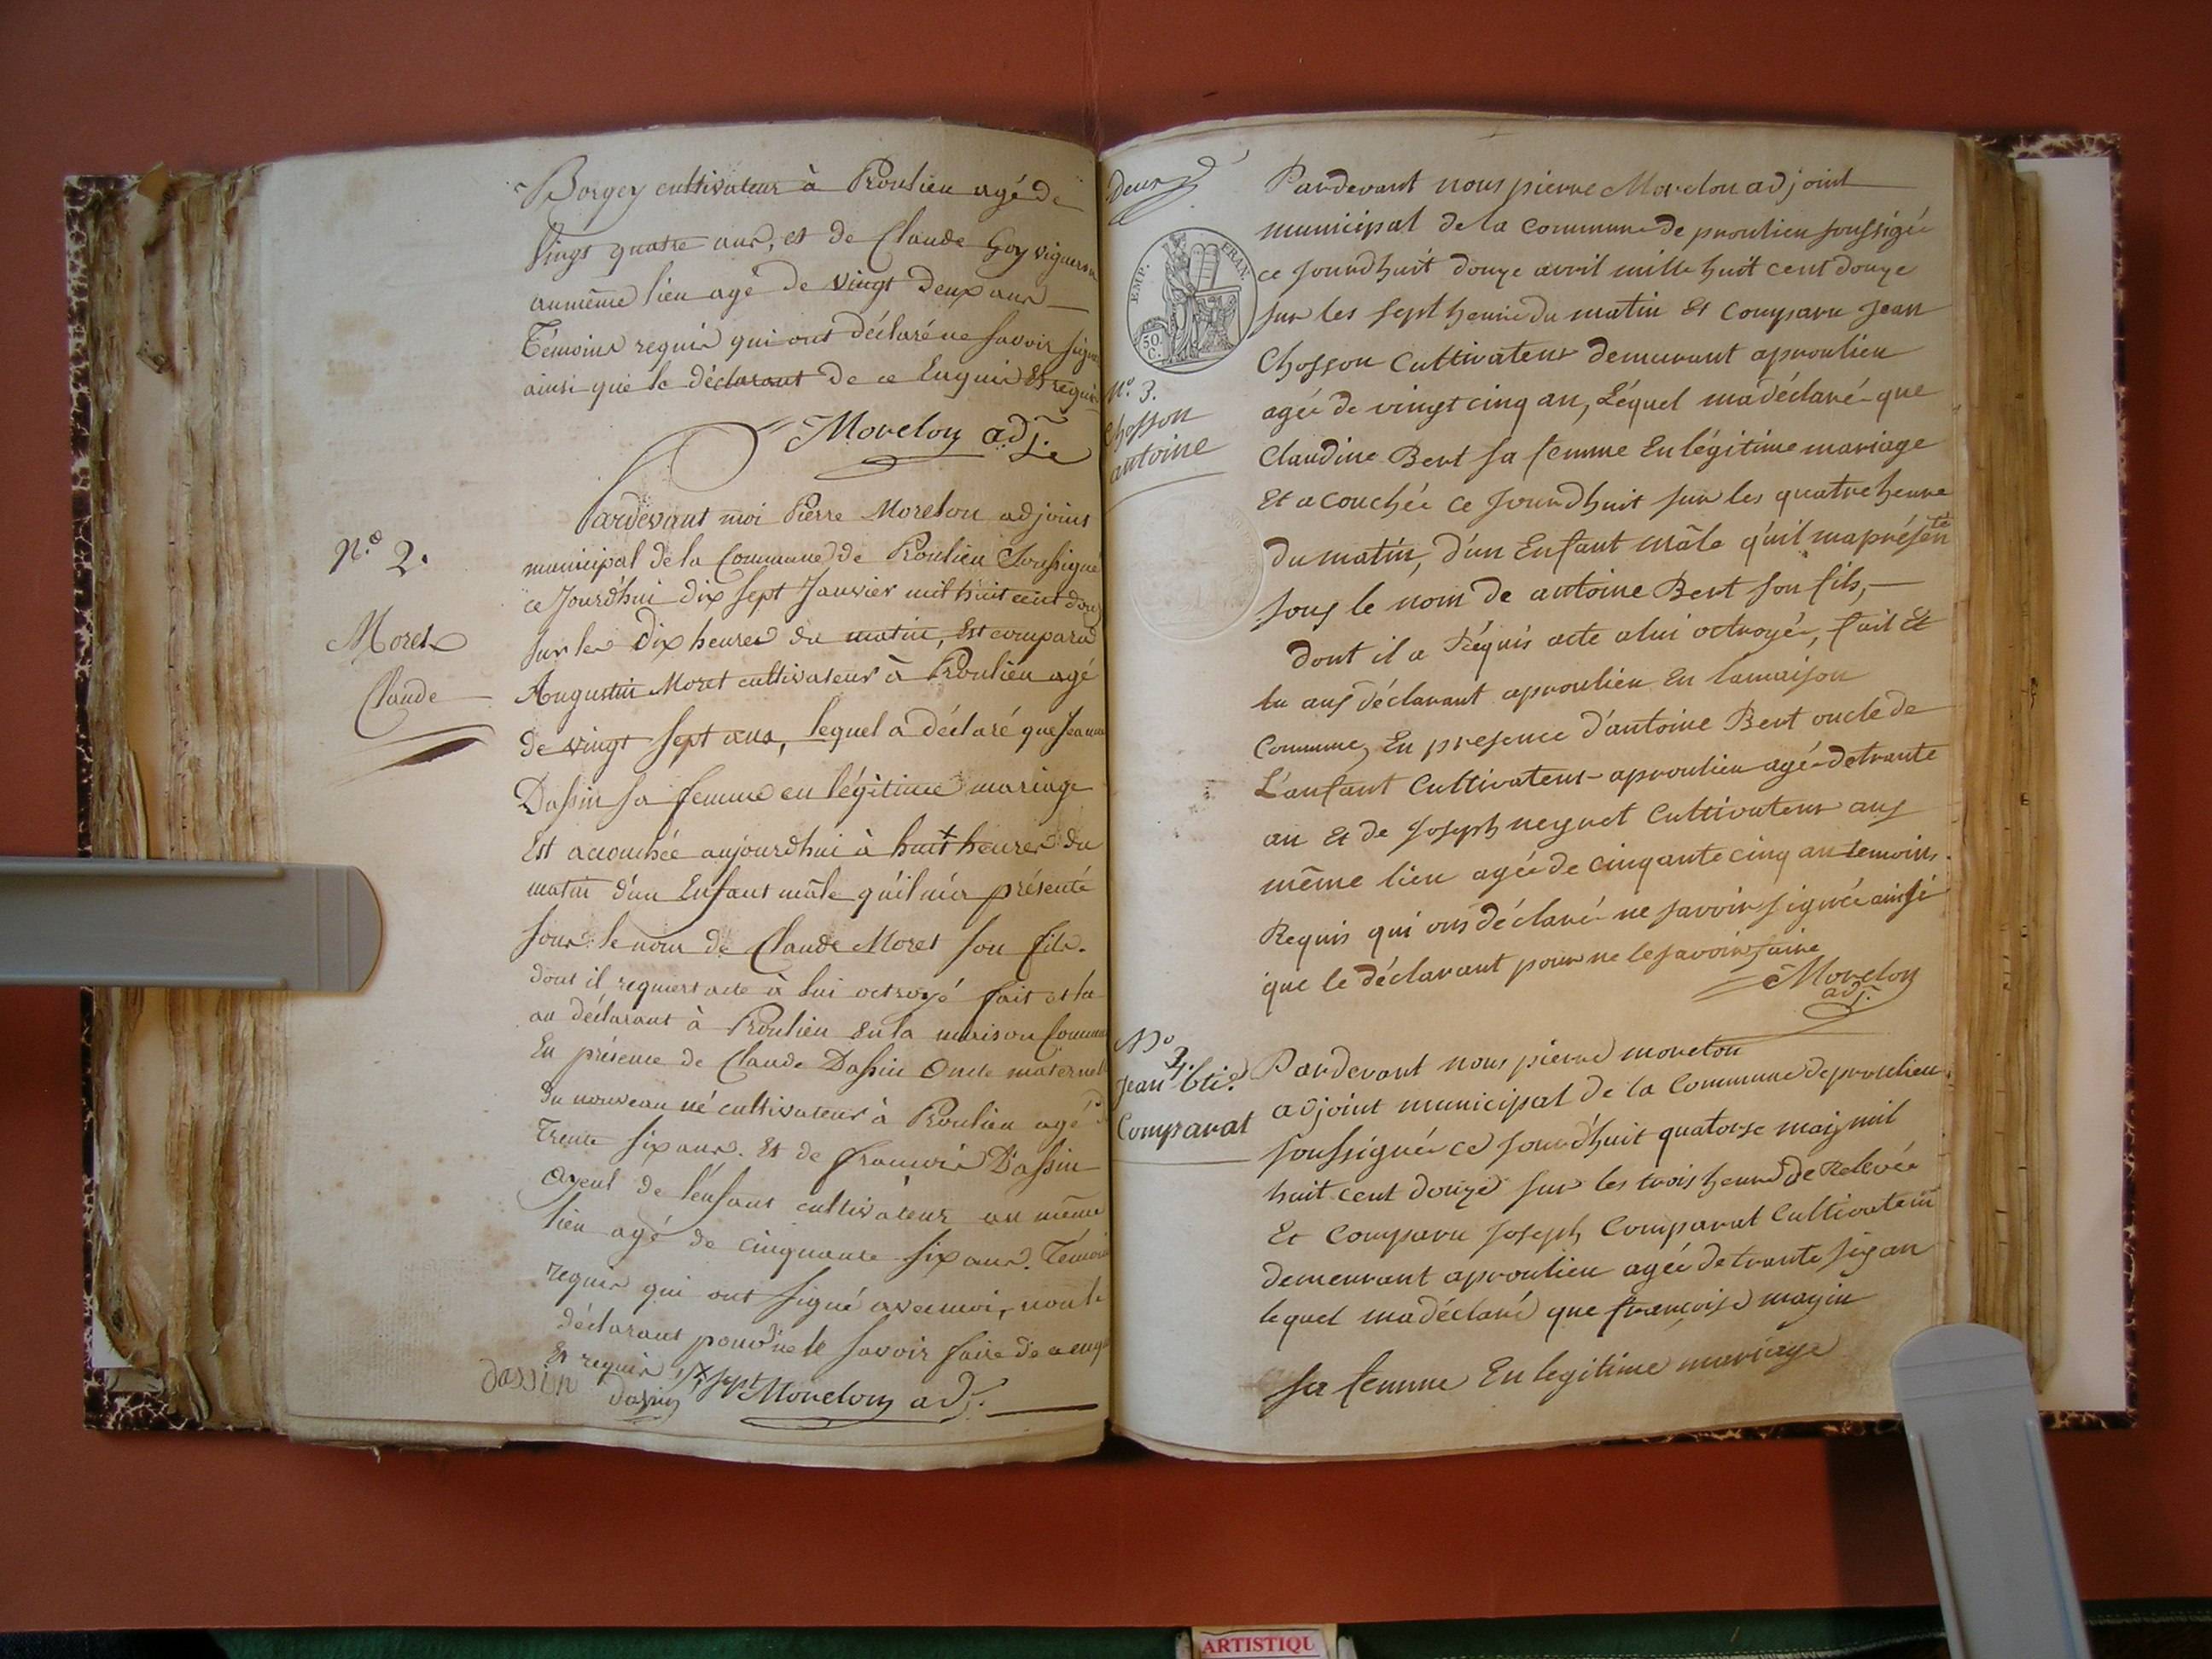 Borgey cultivateur à Proulieu agé de
vingt quatre ans, et de Claude Goy vigneron
au même lieu agé de vingt deux ans
Témoins requis qui ont déclaré ne savoir signer
ainsi que le déclarant de ce Enquis Et requis
Morelon adj.
N.o 2.
Moret
Claude
Pardevant moi Pierre Morelon adjoint
municipal de la Commune de Proulieu Soussigné
ce Jourd'hui dix sept Janvier mil huit cent douze
sur les Dix heures du matin, Est comparu
Augustin Moret cultivateur à Proulieu agé
de vingt sept ans, lequel a déclaré que Jeanne
Dassin sa femme en légitime mariage
Est accouchée aujourdhui à huit heures du
matin d'un Enfant mâle qu'il m'a présenté
sous le nom de Claude Moret son fils.
dont il requiert acte à lui octroyé fait et lu
au déclarant à Proulieu en la maison Commune
En présence de Claude Dassin Oncle maternel
du nouveau né cultivateur à Proulieu agé de
Trente six ans. Et de françois Dassin
Ayeul de l'enfant cultivateur au même
lieu agé de cinquante six ans. Témoins
requis qui ont signé avec moi, non le
déclarant pour ne le savoir faire de ce enquis
Et requis sept
dassin dassin Morelon adj.
Deux
EMP. FRAN.
50 C.
N.o 3.
Chosson
antoine
Pardevant nous pierre Morelon adjoint
municipal de la Commune de proulieu soussigée
ce Jourdhuit douze avril mille huit cent douze
sur les sept heure du matin Et Comparu Jean
Chosson Cultivateur demeurant aproulieu
agée de vingt cinq an, Léquel madéclaré que
Claudine Bert sa femme En légitime mariage
Et acouchée ce Jourdhuit sur les quatre heure
du matin, d'un Enfant mâle qu'il maprésenté
sous le nom de antoine Bert son fils,
dont il a Réquis acte alui octroyé, fait Et
lu aus déclarant aproulieu En lamaison
Commune, En presence d'antoine Bert oncle de
L'anfant Cultivateur aproulieu agée detrante
an Et de Joseph neyret Cultivateur aus
même lieu agée de cinqante cinq an temoins
Requis qui ons déclaré ne savoir signée ainsi
que le déclarant pour ne le savoir faire
Morelon
adj.
No
Jean btie.
Comparat
Pardevant nous pierre morelon
adjoint municipal de la Commune deproulieu
soussignée ce Jourd'huit quatorse maij mil
huit cent douze sur les trois heure de Relevée
Et Comparu Joseph Comparat Cultivateur
demeurant aproulieu agée detrante six an
lequel madéclaré que françoise magin
sa femme En legitime mariage
ARTISTIQU